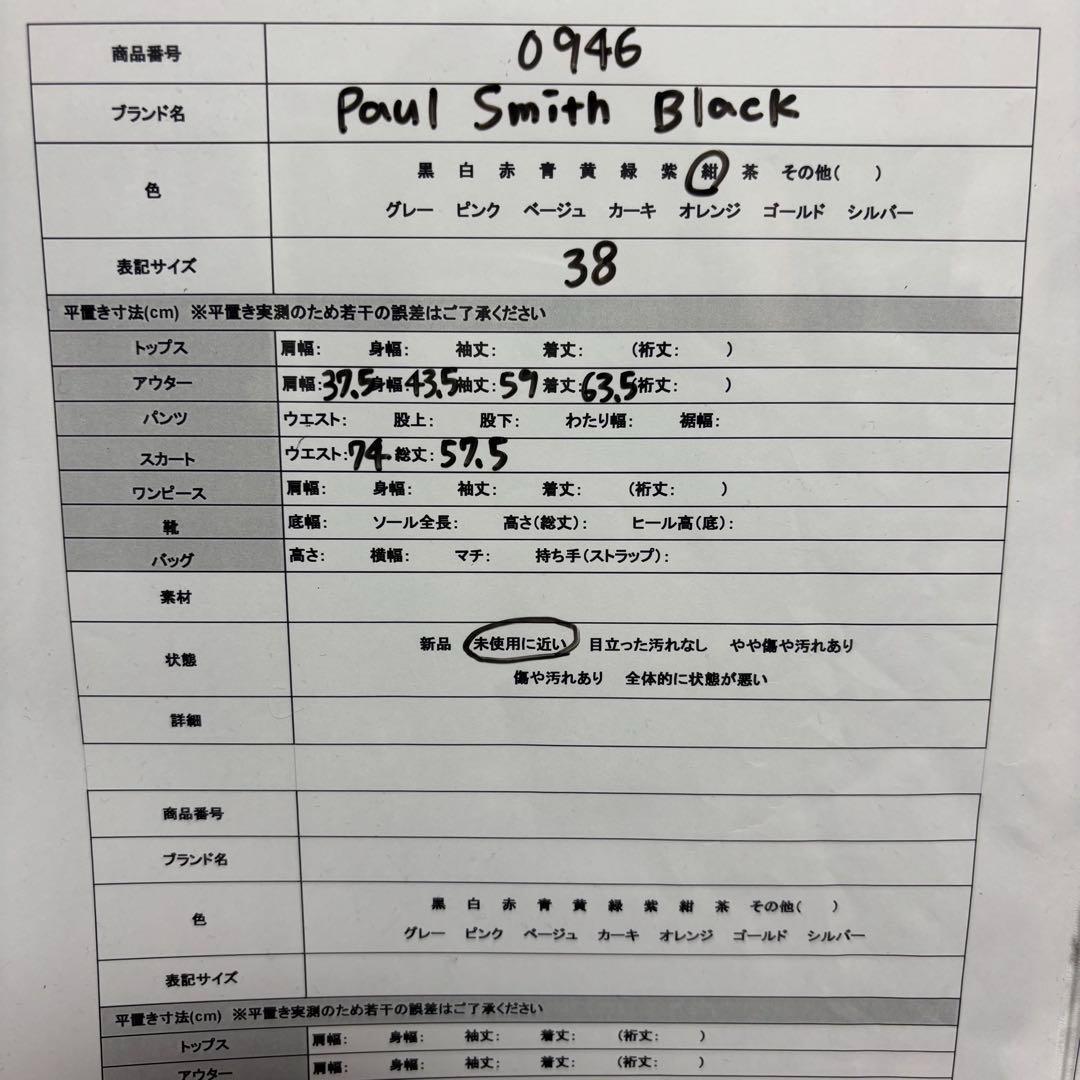 商品番号 0946
ブランド名 Paul Smith Black
色 黒 白 赤 青 黄 緑 紫 紺 茶 その他( )
グレー ピンク ベージュ カーキ オレンジ ゴールド シルバー
表記サイズ 38
平置き寸法(cm) ※平置き実測のため若干の誤差はご了承ください
トップス 肩幅: 身幅: 袖丈: 着丈: (裄丈: )
アウター 肩幅:37.5 身幅:43.5 袖丈:59 着丈:63.5 裄丈: )
パンツ ウエスト: 股上: 股下: わたり幅: 裾幅:
スカート ウエスト:74. 総丈:57.5
ワンピース 肩幅: 身幅: 袖丈: 着丈: (裄丈: )
靴 底幅: ソール全長: 高さ(総丈): ヒール高(底):
バッグ 高さ: 横幅: マチ: 持ち手(ストラップ):
素材
状態 新品 未使用に近い 目立った汚れなし やや傷や汚れあり
傷や汚れあり 全体的に状態が悪い
詳細
商品番号
ブランド名
色 黒 白 赤 青 黄 緑 紫 紺 茶 その他( )
グレー ピンク ベージュ カーキ オレンジ ゴールド シルバー
表記サイズ
平置き寸法(cm) ※平置き実測のため若干の誤差はご了承ください
トップス 肩幅: 身幅: 袖丈: 着丈: (裄丈: )
アウター 肩幅: 身幅: 袖丈: 着丈: (裄丈: )